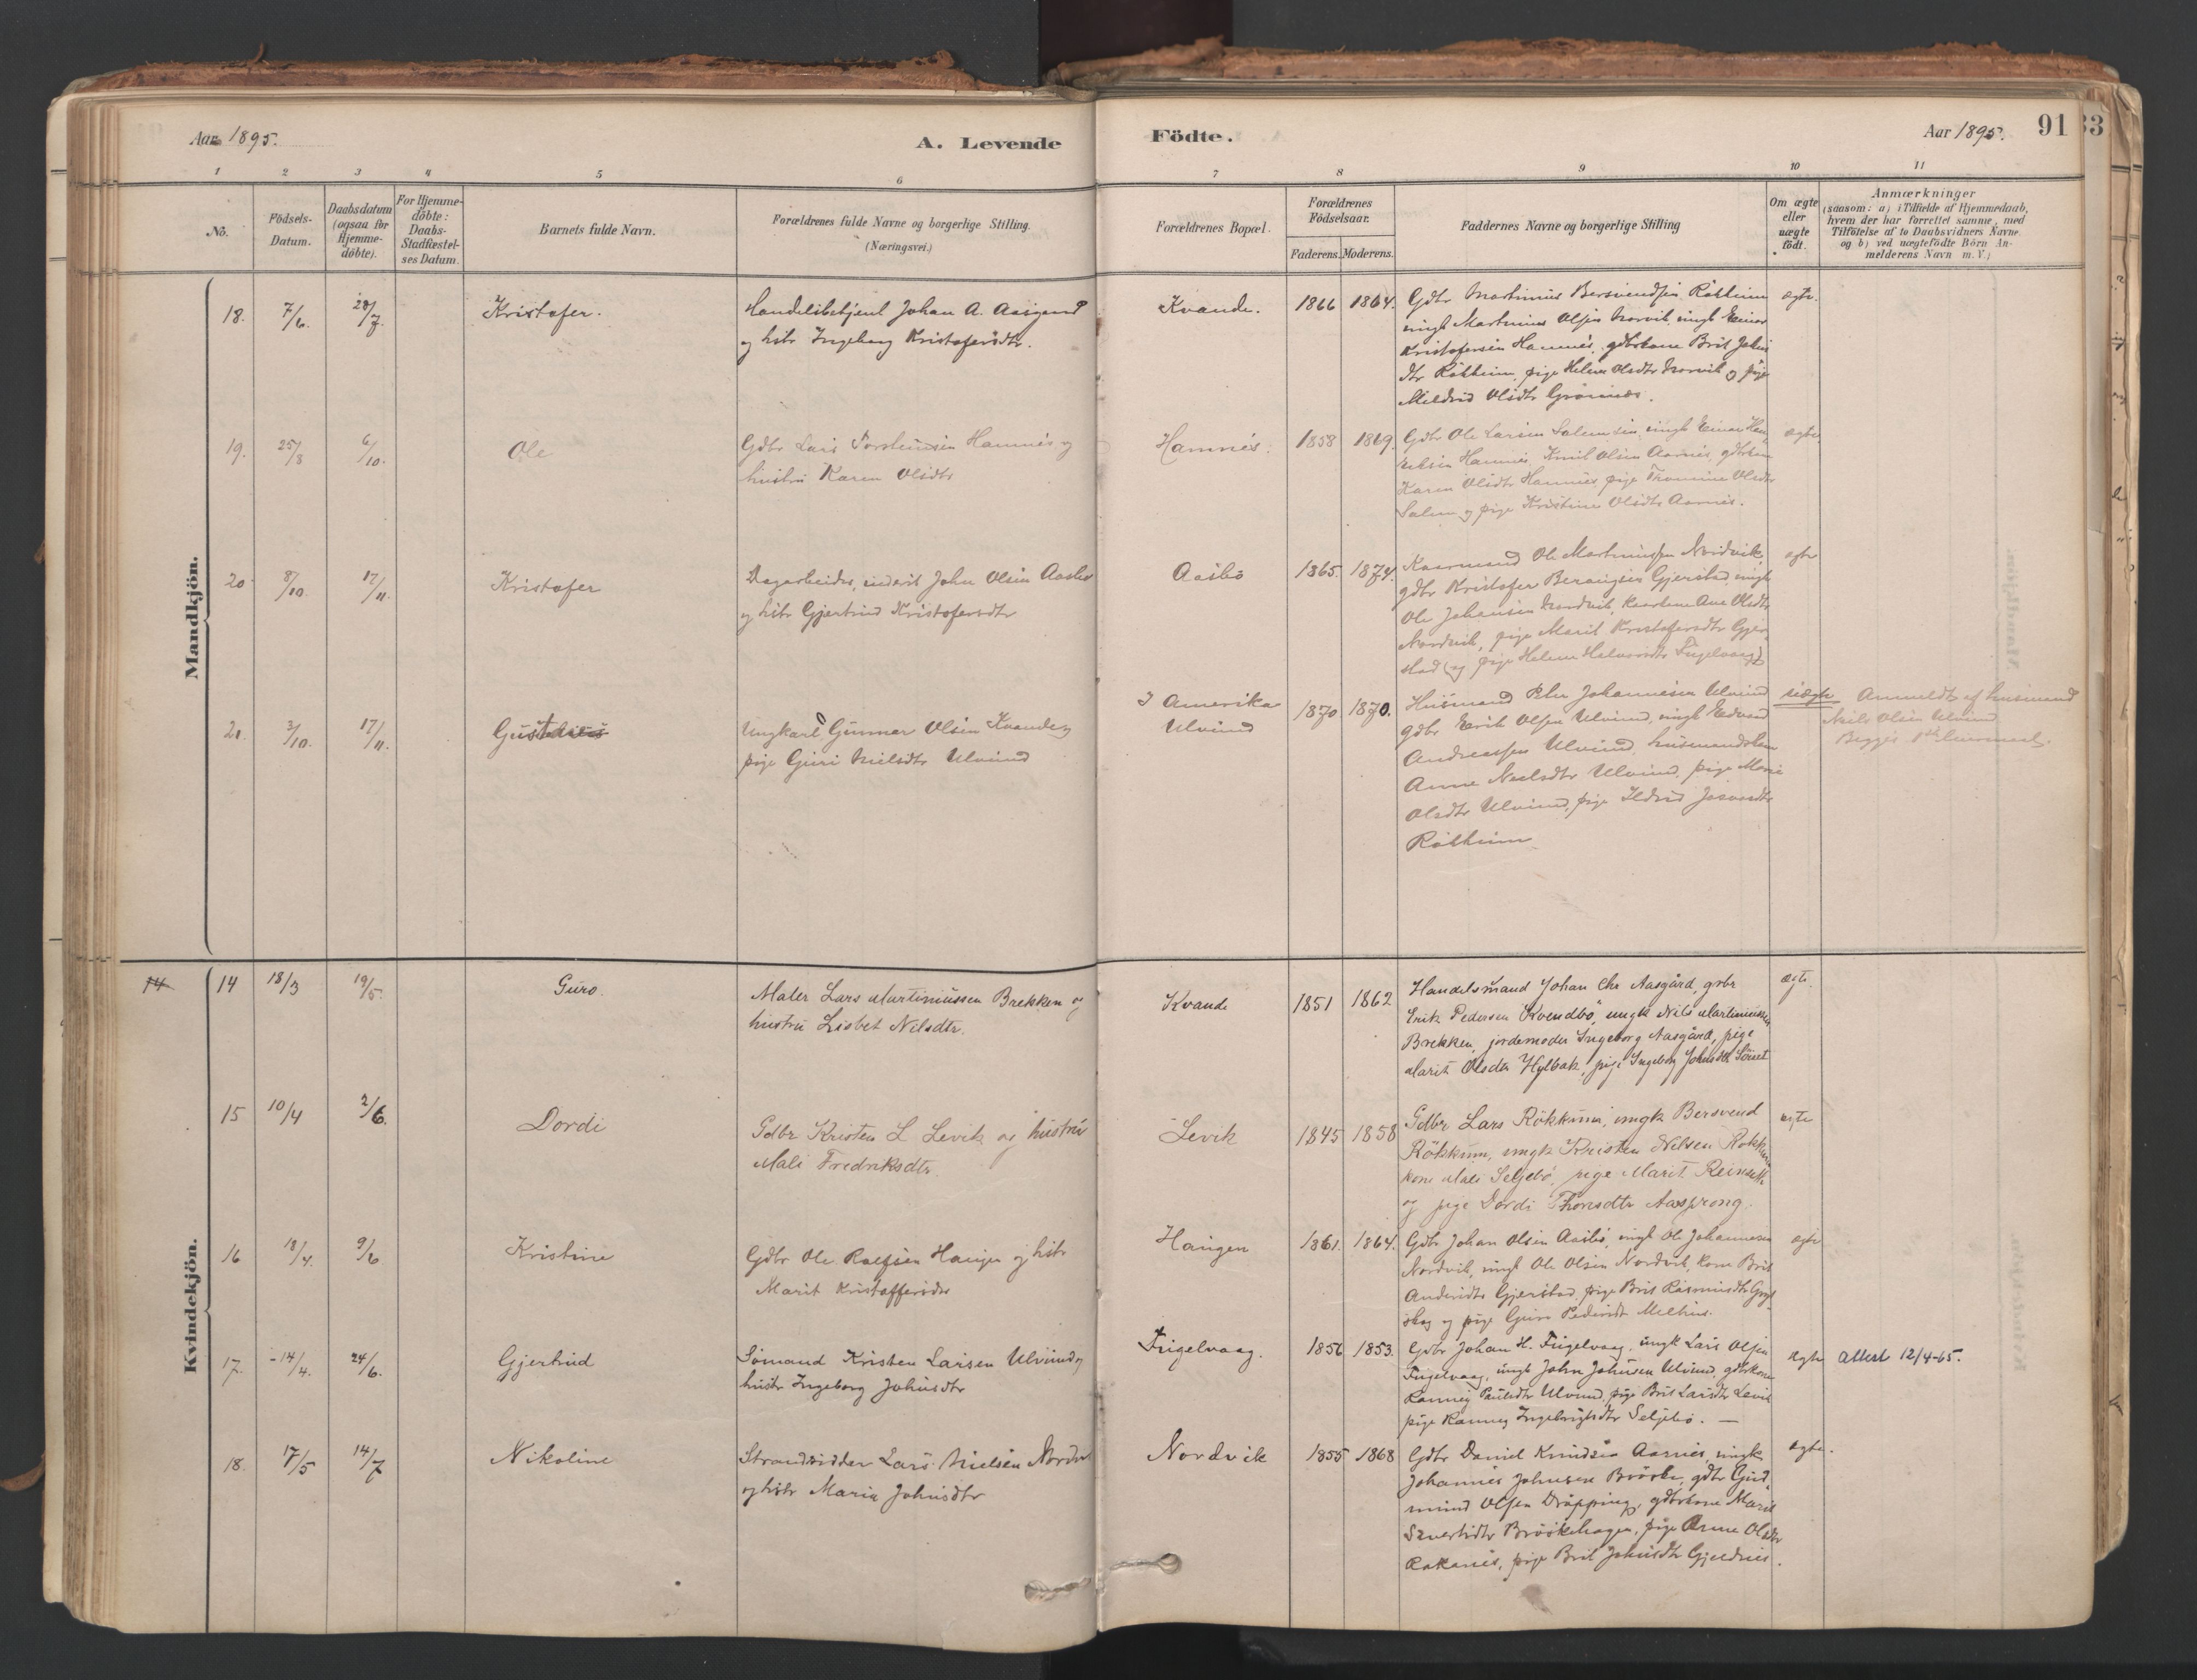 Aar 1895.
A. Levende
Födte.
Aar 1895.
91
33
1 2 3 4 5 6 7 8 9 10 11
No.
Födsels-Datum.
Daabsdatum (ogsaa for Hjemme-döbte).
For Hjemme-döbte: Daabs-Stadfæstel-ses Datum.
Barnets fulde Navn.
Forældrenes fulde Navne og borgerlige Stilling. (Næringsvei.)
Forældrenes Bopæl.
Forældrenes Födselsaar.
Faderens. Moderens.
Faddernes Navne og borgerlige Stilling
Om ægte eller uægte födt.
Anmærkninger
(saasom: a) i Tilfælde af Hjemmedaab,
hvem der har forrettet samme, med
Tilföielse af to Daabsvidners Navne.
og b) ved uægtefödte Börn An-
melderens Navn m. V.)
Mandkjön.
18. 7/6. 28/7. Kristofer.
Handelsbetjent Johan A. Aasgaard
og hstr Ingeborg Kristofersdtr.
Kvande. 1866 1864.
Gdbr Martinus Bersvendsen Rökkum
ungk Martinus Olsen Norvik, ungk Einar
Kristofersen Hamnes, gdbrkone Brit Johns
dtr Rökkum, pige Helene Olsdtr Norvik og pige
Mildrid Olsdtr Grönnes.
ægte.
19. 25/8 6/10. Ole
Gdbr Lars Torsteinsen Hamnes og
hustru Karen Olsdtr
Hamnes. 1858 1869.
Gdbr Ole Larsen Salem, ungk Einar
Hamnes, Emil Olsen Aarnes, gdbrkone
Karen Olsdtr Hamnes pige Thomine Olsdtr
Salem og pige Kristine Olsdtr Aarnes.
ægte
20 8/10. 17/11. Kristofer
Dagarbeider, inderst John Olsen Aasbø
og hstr Gjertrud Kristofersdtr
Aasbö 1865. 1874.
Kaarmand Ole Martinussen Nordvik,
gdbr Kristofer Gjerstad, ungk
Ole Johansen Nordvik, kaarkone Ane Olsdtr
Nordvik, pige Marit Kristofersdtr Gjer-
stad (og pige Helene Halvorsdtr Fugelvaag)
ægte
21. 3/10. 17/11.
Ungkarl Gunnar Olsen Kvande og
pige Guri Nielsdtr Ulvund
I Amerika
Ulvund
1870 1870.
Husmand Peder Johannesen Ulvund
gdbr Erik Olsen Ulvund, ungk Edvard
Andreassen Ulvund, husmandskone
Anne Neelsdtr Ulvund, pige Marie
Olsdtr Ulvund, pige Ildrid
Rökkum
uægte
Anmeldt af husmand
Neils Olsen Ulvund
Begges 1ste
Kvindekjön.
14 14 18/3 19/5. Guro.
Maler Lars Martinussen Brekken og
hustru Lisbet Nilsdtr.
Kvande 1851 1862
Handelsmand Johan Chr Aasgård, grbr
Erik Pedersen Kvendbö, ungk Nils Martinussen
Brekken, jordemoder Ingeborg Aasgård, pige
Marit Olsdtr Hylbak, pige Ingeborg Johnsdtr
ægte.
15 10/4 2/6. Dordi
Gdbr Kristen L Levik og hustru
Mali Fredriksdtr.
Levik 1845 1858
Gdbr Lars Rökkum, ungk Bersvend
Rökkum, ungk Kristen Nilsen Rökkum
kone Mali Seljebö, pige Marit
og pige Dordi Thoresdtr Aasprong.
ægte
16 18/4. 9/6 Kristine
Gdbr Ole Rolfsen Haugen og hstr
Marit Kristoffersdtr
Haugen 1861. 1864.
Gdbr Johan Olsen Aasbö, ungk Ole Johannesen
Nordvik, ungk Ole Olsen Nordvik, kone Brit
Andersdtr Gjerstad, pige Brit Rasmusdtr
skog og pige Guro Pedersdtr Melhus.
ægte
17. -14/4. 24/6. Gjertrud
Sömand Kristen Larsen Ulvund og
hustr Ingeborg Johnsdtr
Fugelvaag. 1856 1853.
Gdbr Johan H. Fugelvaag, ungk Lars Olsen
Fugelvaag, ungk John Johnsen Ulvund, gdbrkone
Ranneig Paulsdtr Ulvund, pige Brit Larsdtr Levik
pige Ranneg Ingebrigtsdtr Seljebö. —
ægte
attest 12/4-65.
18. 17/5 14/7 Nikoline
Strandsidder Lars Nielsen Nordv
og hstr Maria Johnsdtr
Nordvik 1855 1868
Gdbr Daniel Knudsen Aarnes, ungk
Johannes Johnsen gdbr Gud-
mund Olsen Dröpping, gdbrkone Marit
Sivertsdtr pige Anne Olsdtr
Rakanes, pige Brit Johnsdtr Gjeldnes.
ægte.